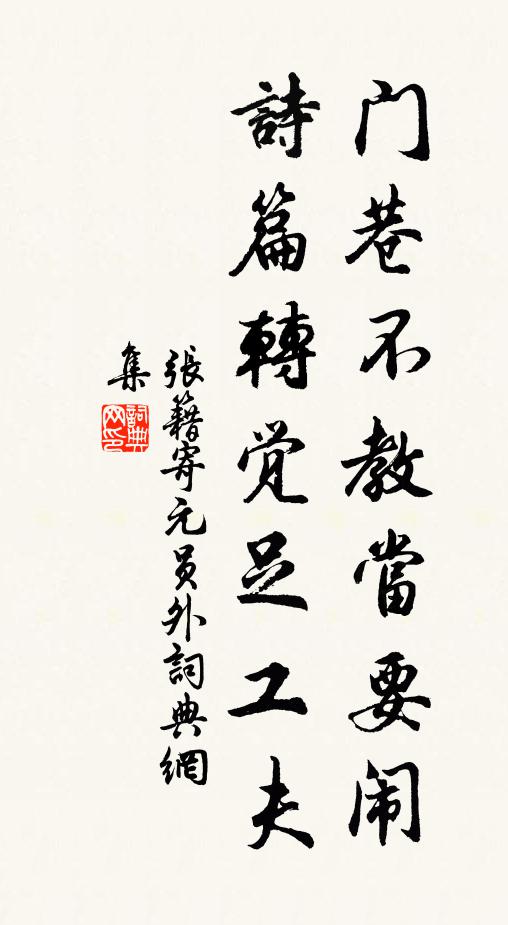 门巷不教當要闹
詩篇轉觉足工夫
張籍寄元员外詞典網
集
詞典网印